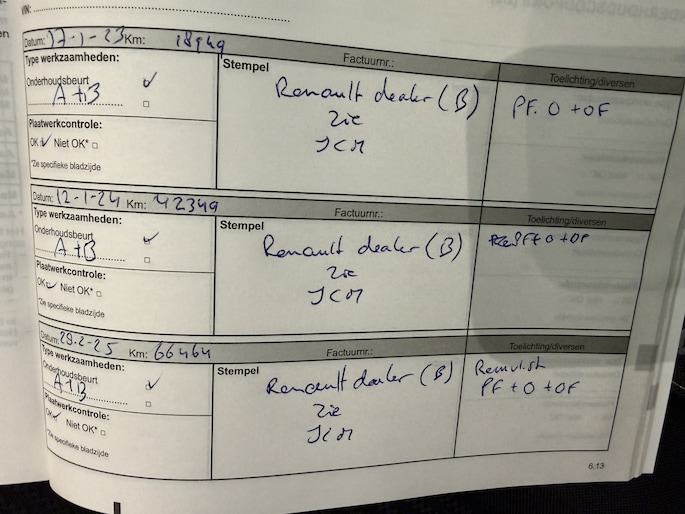 VIN:
Datum: 17-1-23 Km: 18949
Factuurnr.:
Toelichting/diversen
Type werkzaamheden:
Onderhoudsbeurt
A+B
Stempel
Renault dealer (B)
Zie
ICM
PF. O + OF
Plaatwerkcontrole:
OK Niet OK*
*Zie specifieke bladzijde
Datum: 12-1-24 Km: 42349
Factuurnr.:
Toelichting/diversen
Type werkzaamheden:
Onderhoudsbeurt
A+B
Stempel
Renault dealer (B)
Zie
ICM
PF + O + OF
Plaatwerkcontrole:
OK Niet OK*
*Zie specifieke bladzijde
Datum: 28-2-25 Km: 66464
Factuurnr.:
Toelichting/diversen
Type werkzaamheden:
Onderhoudsbeurt
A+B
Stempel
Renault dealer (B)
Zie
ICM
Remvlst
PF + O + OF
Plaatwerkcontrole:
OK Niet OK*
*Zie specifieke bladzijde
6.13